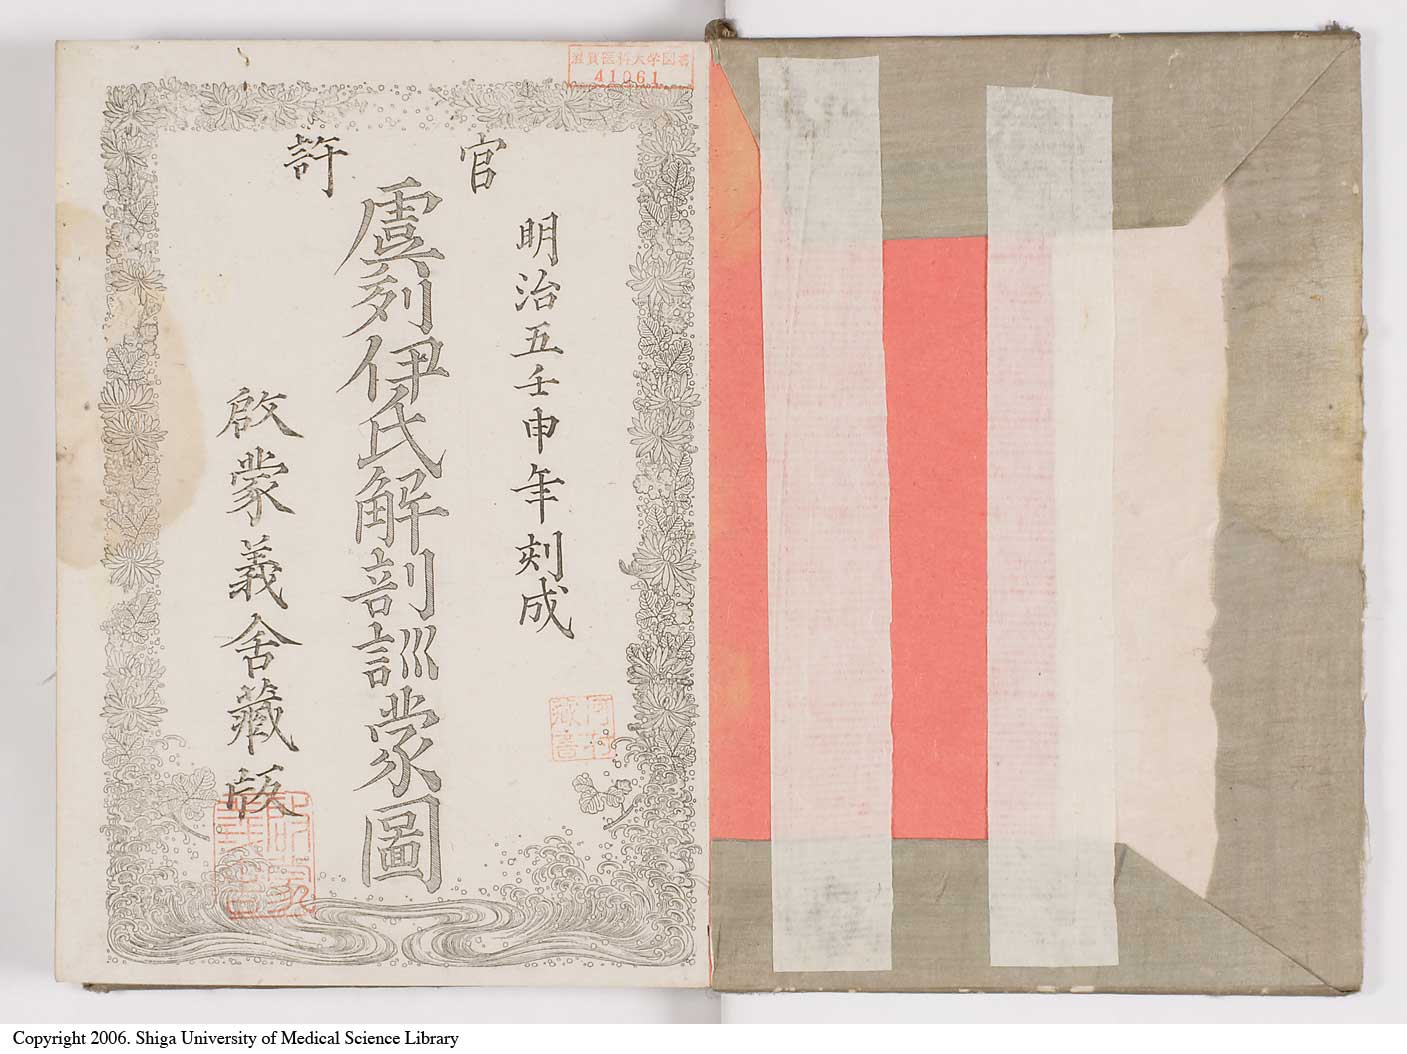 滋賀医科大学図書
41061
官許
明治五壬申年刻成
虞列伊氏解剖訓蒙圖
啟蒙義舍藏版
河村
藏書
Copyright 2006. Shiga University of Medical Science Library